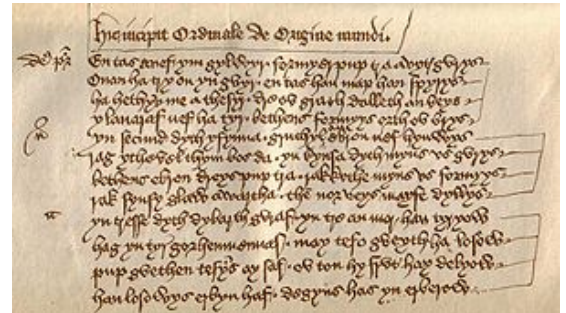 Hic incipit Ordinale de Origine mundi.
de9 pr En tas a nef ym gylwyr formyer pup tra a vyt gvrys
Onan ha try on yn gvyr en tas han map han spyrys
ha hethyv me a thesyr dre ov grath dalleth an beys
y lavaraf nef ha tyr bethens formyys orth ov brys
yn secund dyth y fynna gruthyl ebron nef hynwys
rag ythevel thym bos da yn kynsa dyth myns vs gvrys
bethens ebron dreys pup tra rak kuthe myns vs formyys
rak synsy glaw awartha the nor veys may fe
yn tresse dyth dybarth gvraf yn tre an mor han tyryow
hag yn tyr gorhenmennaf may tefo gveyth ha losow
pup gvethen tefyns ay saf ov ton hy frut hay delyow
han losowys erbyn haf degyns has yn erberow